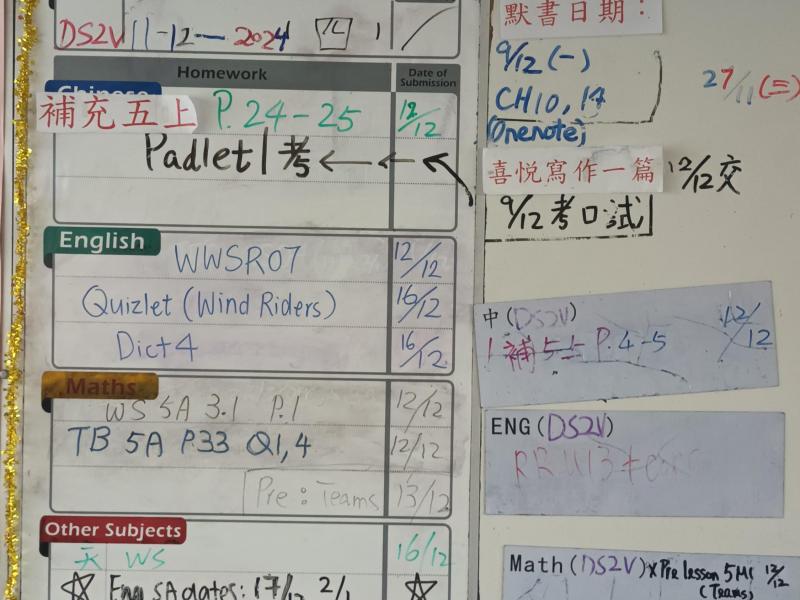 DS2V 11-12-2024
Homework
Date of Submission
Chinese
補充五上 P.24-25 12/12
Padlet 1 考 ← ← ←
English
WWSR07 12/12
Quizlet (Wind Riders) 16/12
Dict 4 16/12
Maths
WS 5A 3.1 P.1 12/12
TB 5A P33 Q1,4 12/12
Pre: Teams 13/12
Other Subjects
WS 16/12
☆ Eng SA dates: 17/12 2/1 ☆
默書日期:
9/12 (一) 27/11 (三)
CH10, 14
(Onenote)
喜悦寫作一篇 12/12 交
9/12 考口試
中(DS2V) 12/12
補5上 P.4-5
ENG (DS2V)
Math (DS2V) x Pre lesson 12/12
(Teams)